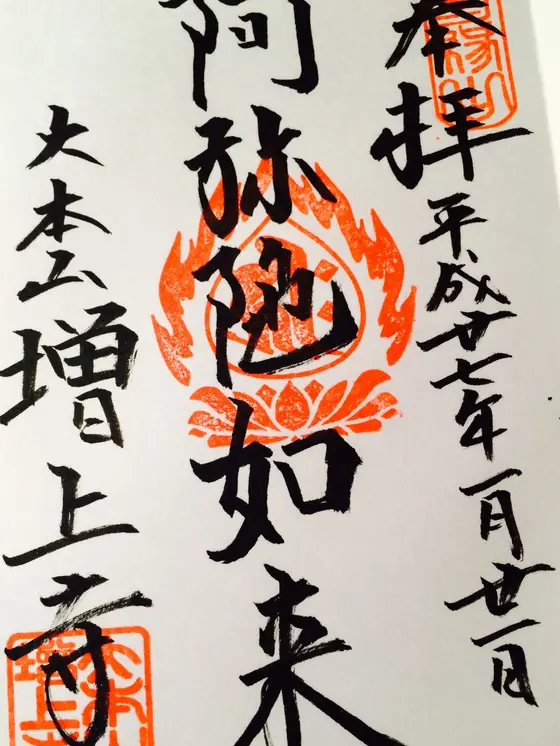 奉拝
平成廿七年一月廿一日
阿弥陀如来
大本山増上寺